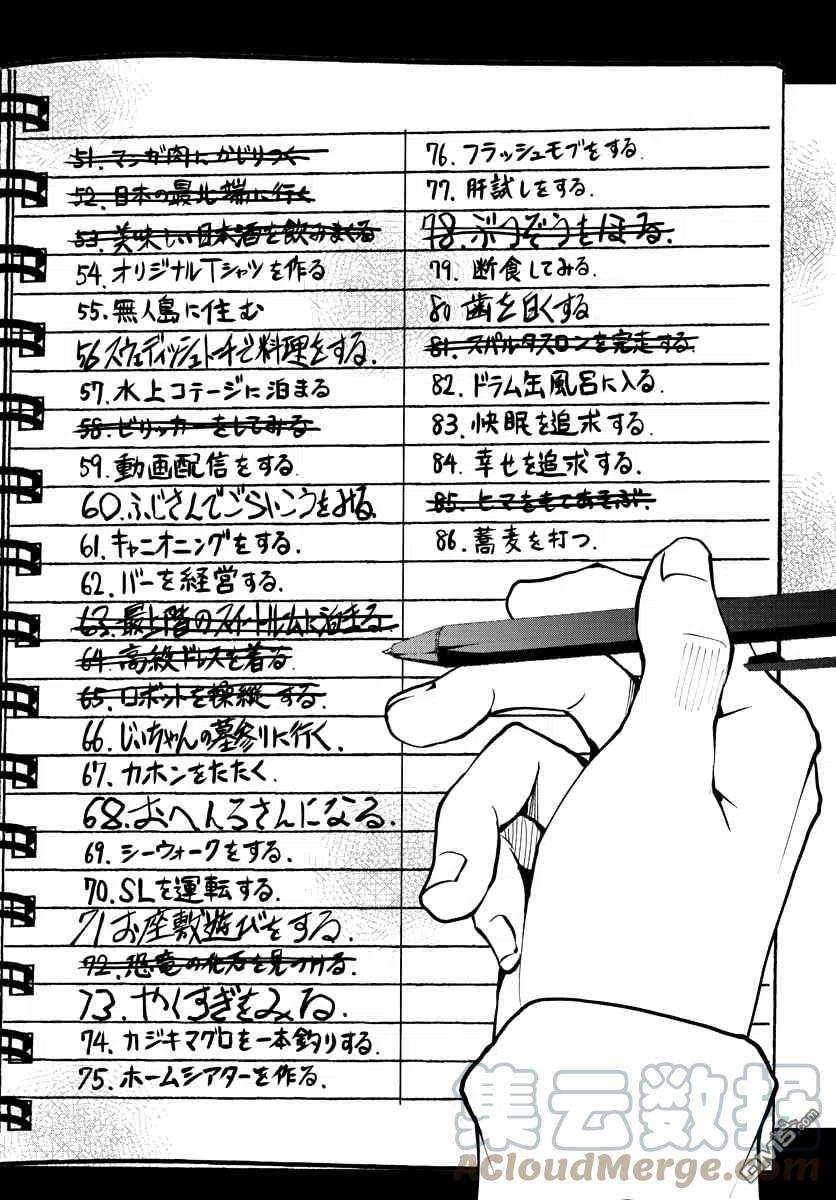 51. マンガ肉にかじりつく
52. 日本の最北端に行く
53. 美味しい日本酒を飲みまくる
54. オリジナルTシャツを作る
55. 無人島に住む
56 スウェディッシュトーチで料理をする.
57. 水上コテージに泊まる
58. ビリッカーをしてみる
59. 動画配信をする.
60. ふじさんでごらいこうをみる.
61. キャニオニングをする.
62. バーを経営する.
63. 最上階のスイートルームに泊まる.
64. 高級ドレスを着る
65. ロボットを操縦する.
66. じいちゃんの墓参りに行く.
67. カホンをたたく.
68. おへんろさんになる.
69. シーウォークをする.
70. SLを運転する.
71 お座敷遊びをする.
72. 恐竜の化石を見つける.
73. やくすぎをみる.
74. カジキマグロを一本釣りする.
75. ホームシアターを作る.
76. フラッシュモブをする.
77. 肝試しをする.
78. ぶつぞうをほる.
79. 断食してみる.
80 歯を白くする
81. スパルタスロンを完走する.
82. ドラム缶風呂に入る.
83. 快眠を追求する.
84. 幸せを追求する.
85. ヒマをもてあそぶ.
86. 蕎麦を打つ.
集云数据
ACloudMerge.com